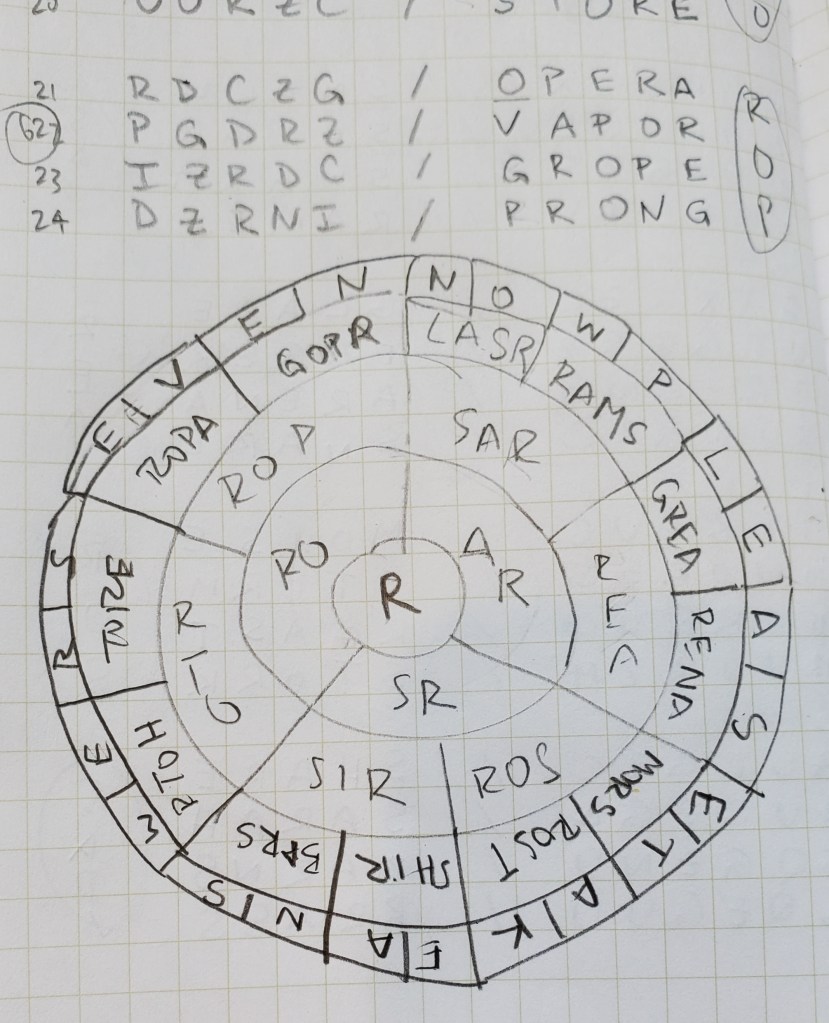 R Z C / S T O R E O
21 R D C Z G / O P E R A R
22 P G D R Z / V A P O R O
23 I Z R D C / G R O P E
24 D Z R N I / P R O N G P
N O W P L E A S E T A K E A N S W E R S E V E N
LASR
RAMS
GREA
RENA
MORS
ROST
SHIR
BARS
RTOH
ROPA
GOPR
SAR
REA
SOR
SIR
ROP
AR
SR
RO
R